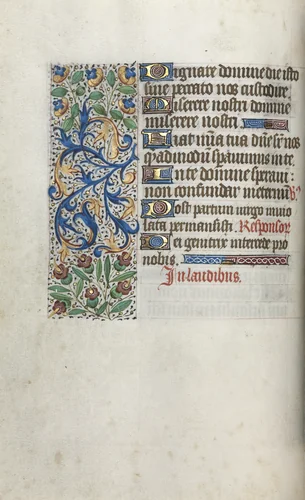 Dignare domine die isto
sine peccato nos custodire.
Miserere nostri domine
miserere nostri.
Fiat mia tua dne sr nos
quadmodu sperauimus in te.
In te domine speraui:
non confundar in eternu. V.
Post partum uirgo inuio
lata permansisti. Responsor
Dei genitrix intercede pro
nobis.
In laudibus.